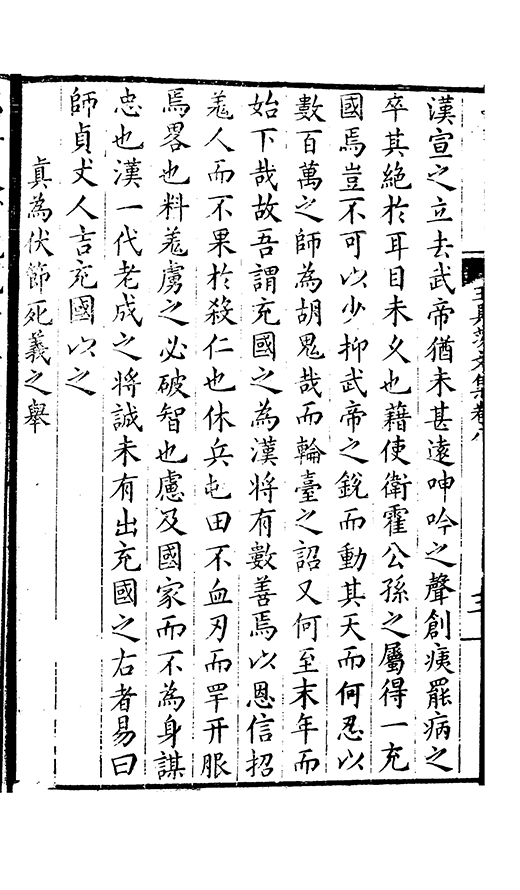 漢宣之立去武帝猶未甚遠呻吟之聲創痍罷病之
卒其絕於耳目未久也藉使衛霍公孫之屬得一充
國焉豈不可以少抑武帝之銳而動其天而何忍以
數百萬之師為胡鬼哉而輪臺之詔又何至末年而
始下哉故吾謂充國之為漢將有數善焉以恩信招
羗人而不果於殺仁也休兵屯田不血刃而罕幵服
焉畧也料羗虜之必破智也慮及國家而不為身謀
忠也漢一代老成之將誠未有出充國之右者易曰
師貞丈人吉充國以之
真為伏節死義之舉
文集卷八